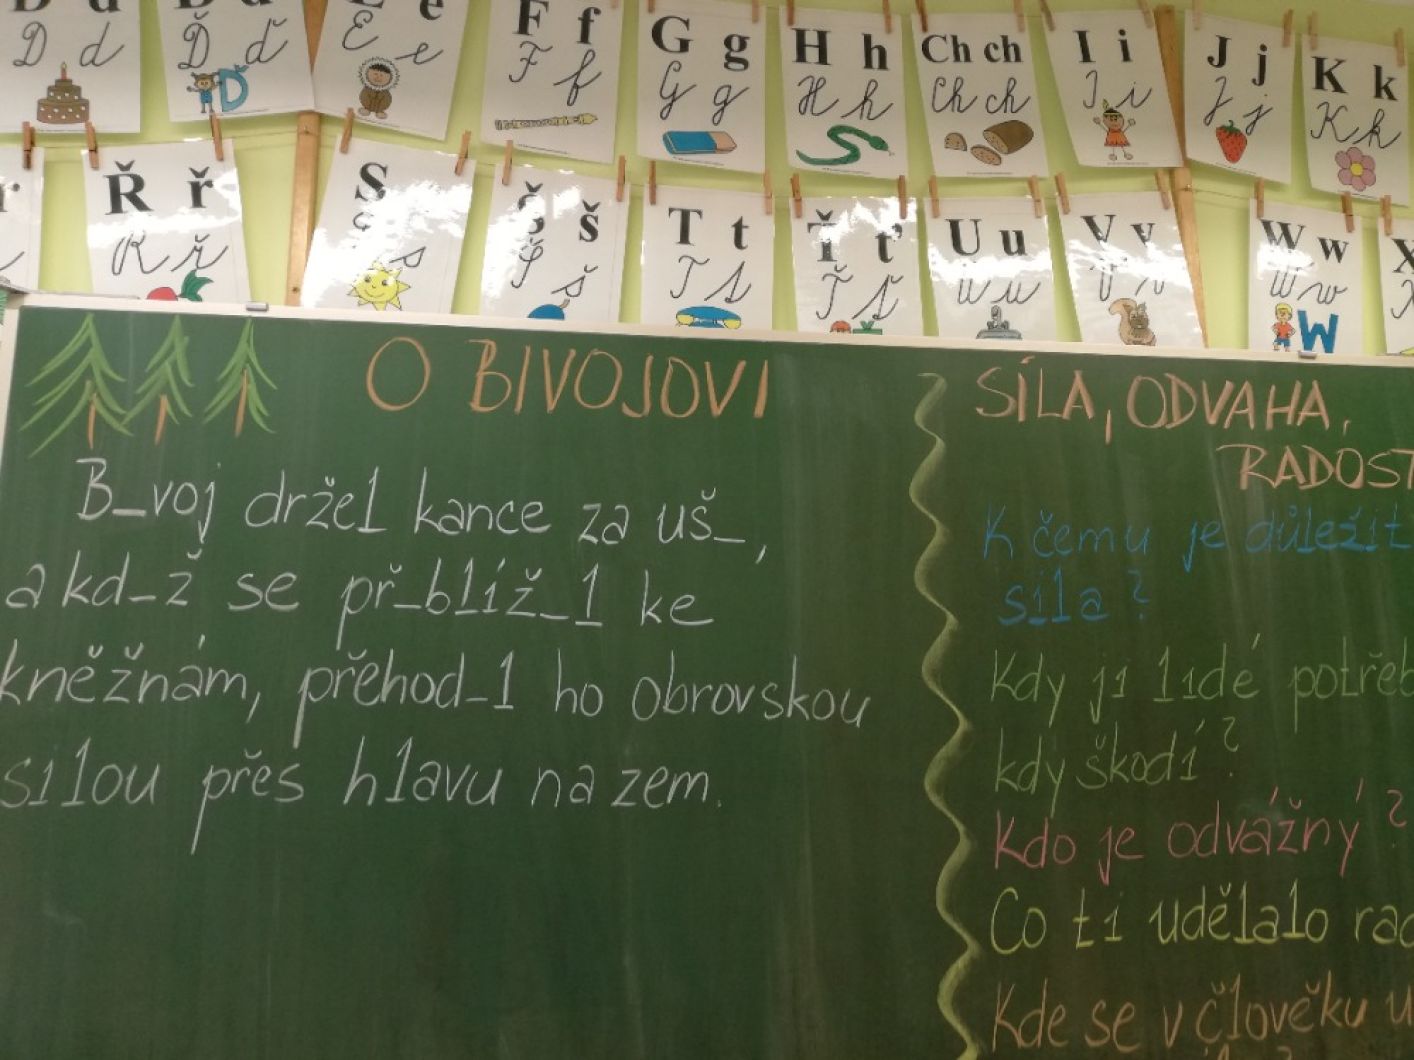 D d
Ď ď
E e
F f
G g
H h
Ch ch
I i
J j
K k
D d
Ď ď
E e
F f
G g
H h
Ch ch
I i
J j
K k
Ř ř
S
Š š
T t
Ť ť
U u
V v
W w
X
Ř ř
S s
Š š
T t
Ť ť
U u
V v
W w
W
O BIVOJOVI
B_voj držel kance za uš_,
a kd_ž se př_blíž_l ke
kněžnám, přehod_l ho obrovskou
silou přes hlavu na zem.
SÍLA, ODVAHA,
RADOST
K čemu je důležit
síla?
Kdy ji lidé potřeb
kdy škodí?
Kdo je odvážný?
Co ti udělalo rad
Kde se v člověku u